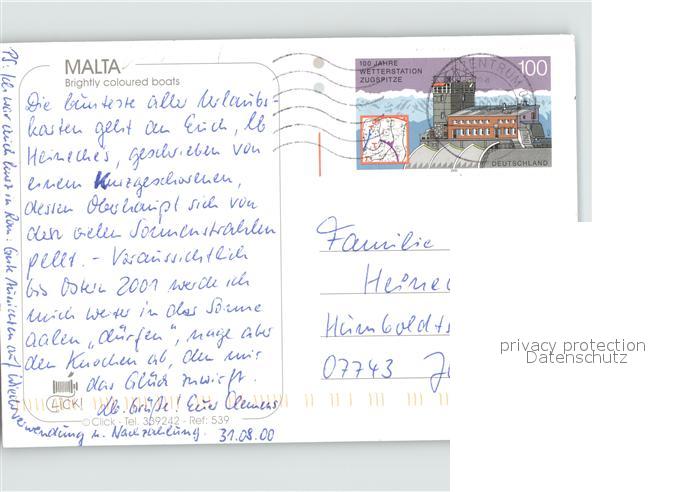 MALTA
Brightly coloured boats
Die bunteste aller Urlaubs-
karten geht an Euch, lb
Heineches, geschrieben von
einem Kurzgeschorenen,
dessen Oberhaupt sich von
den vielen Sonnenstrahlen
pellt. - Voraussichtlich
bis Ostern 2001 werde ich
mich weiter in der Sonne
aalen "dürfen", nage aber
den Knochen ab, den mir
das Glück zuwirft.
lb. Grüße! Euer Clemens
CLICK!
© Click - Tel. 339242 - Ref: 539
31.08.00
PS: Ich war auch kurz in Rom: Gute Aussichten auf Wieder
verwendung u. Nachzahlung.
100 JAHRE
WETTERSTATION
ZUGSPITZE
100
DEUTSCHLAND
Familie
Heinec
Humboldts
07743 Je
privacy protection
Datenschutz